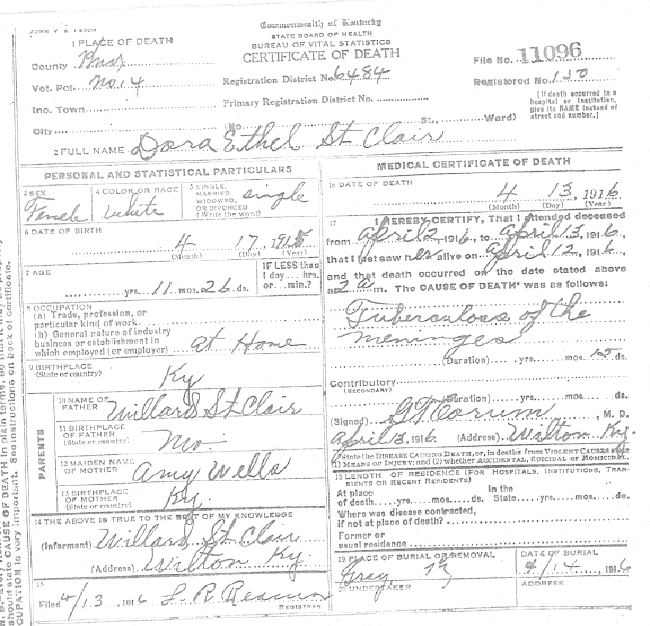 Commonwealth of Kentucky
STATE BOARD OF HEALTH
BUREAU OF VITAL STATISTICS
CERTIFICATE OF DEATH
1 PLACE OF DEATH
County
Vot. Pct. No. 14
Ino. Town
City (No. St., Ward)
Registration District No. 6484
Primary Registration District No.
File No. 11096
Registered No.
[If death occurred in a
hospital or institution,
give its NAME instead of
street and number.]
2 FULL NAME Dora Ethel St Clair
PERSONAL AND STATISTICAL PARTICULARS
3 SEX Female
4 COLOR OR RACE White
5 SINGLE, MARRIED, WIDOWED, OR DIVORCED (Write the word) single
6 DATE OF BIRTH
4 17, 1915
(Month) (Day) (Year)
7 AGE
yrs. 11 mos. 26 ds.
IF LESS than
1 day hrs.
or min.?
8 OCCUPATION
(a) Trade, profession, or
particular kind of work
(b) General nature of industry
business or establishment in
which employed (or employer) at Home
9 BIRTHPLACE
(State or country) Ky
PARENTS
10 NAME OF
FATHER Willard St Clair
11 BIRTHPLACE
OF FATHER
(State or country) Mo
12 MAIDEN NAME
OF MOTHER Amy Wells
13 BIRTHPLACE
OF MOTHER
(State or country) Ky.
14 THE ABOVE IS TRUE TO THE BEST OF MY KNOWLEDGE
(Informant) Willard St Clair
(Address) Wilton Ky.
15
Filed 4/13, 1916 L R
REGISTRAR
MEDICAL CERTIFICATE OF DEATH
16 DATE OF DEATH
4 13, 1916
(Month) (Day) (Year)
17 I HEREBY CERTIFY, That I attended deceased
from April 2, 1916, to April 13, 1916,
that I last saw her alive on April 12, 1916,
and that death occurred on the date stated above
at 2 a m. The CAUSE OF DEATH* was as follows:
Tuberculosis of the
meninges
(Duration) yrs. mos. 15 ds.
Contributory
(SECONDARY)
(Duration) yrs. mos. ds.
(Signed) G T Corum, M. D.
April 13, 1916 (Address) Wilton Ky.
*State the DISEASE CAUSING DEATH, or, in deaths from VIOLENT CAUSES state
(1) MEANS OF INJURY; and (2) whether ACCIDENTAL, SUICIDAL or HOMICIDAL.
18 LENGTH OF RESIDENCE (FOR HOSPITALS, INSTITUTIONS, TRAN-
SIENTS OR RECENT RESIDENTS)
At place In the
of death yrs. mos. ds. State yrs. mos. ds.
Where was disease contracted,
if not at place of death?
Former or
usual residence
19 PLACE OF BURIAL OR REMOVAL Gray, Ky
DATE OF BURIAL 4/14, 1916
20 UNDERTAKER
should state CAUSE OF DEATH in plain terms, so that it may be
CUPATION is very important. See instructions on back of certificate.